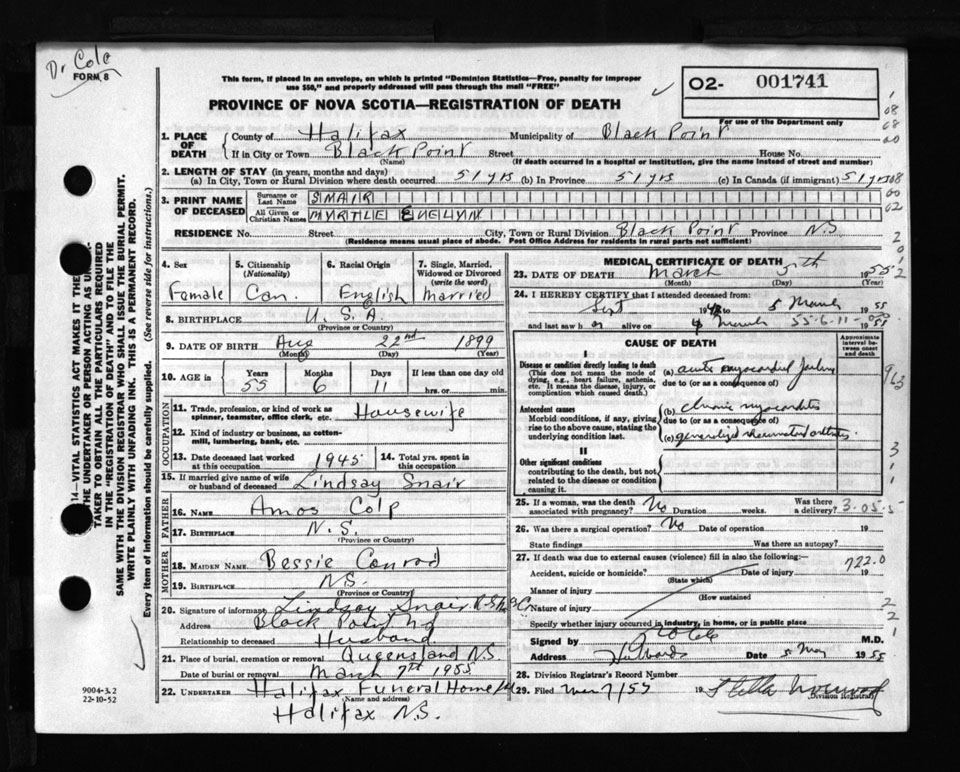 Dr Cole
FORM 8
This form, if placed in an envelope, on which is printed "Dominion Statistics—Free, penalty for improper
use $50," and properly addressed will pass through the mail "FREE"
PROVINCE OF NOVA SCOTIA—REGISTRATION OF DEATH
O2- 001741
For use of the Department only
1. PLACE OF DEATH County of Halifax Municipality of Black Point
If in City or Town Black Point Street House No.
(Name) (If death occurred in a hospital or institution, give the name instead of street and number)
2. LENGTH OF STAY (in years, months and days)
(a) In City, Town or Rural Division where death occurred 51 yrs (b) In Province 51 yrs (c) In Canada (if immigrant) 51 yrs
3. PRINT NAME OF DECEASED Surname or Last Name SNAIR
All Given or Christian Names MYRTLE EVELYN
RESIDENCE No. Street City, Town or Rural Division Black Point Province N.S.
(Residence means usual place of abode. Post Office Address for residents in rural parts not sufficient)
4. Sex Female
5. Citizenship (Nationality) Can.
6. Racial Origin English
7. Single, Married, Widowed or Divorced (write the word) Married
8. BIRTHPLACE U.S.A.
(Province or Country)
9. DATE OF BIRTH Aug 22nd 1899
(Month) (Day) (Year)
10. AGE in Years 55 Months 6 Days 11 If less than one day old hrs. or min.
OCCUPATION
11. Trade, profession, or kind of work as spinner, teamster, office clerk, etc. Housewife
12. Kind of industry or business, as cotton-mill, lumbering, bank, etc.
13. Date deceased last worked at this occupation 1945
14. Total yrs. spent in this occupation
15. If married give name of wife or husband of deceased Lindsay Snair
FATHER
16. NAME Amos Colp
17. BIRTHPLACE N.S.
(Province or Country)
MOTHER
18. MAIDEN NAME Bessie Conrod
19. BIRTHPLACE N.S.
(Province or Country)
20. Signature of informant Lindsay Snair
Address Black Point N.S
Relationship to deceased Husband
21. Place of burial, cremation or removal Queensland N.S.
Date of burial or removal March 7th 1955
22. UNDERTAKER Halifax Funeral Home Ltd
(Name and address)
Halifax N.S.
MEDICAL CERTIFICATE OF DEATH
23. DATE OF DEATH March 5th 1955
(Month) (Day) (Year)
24. I HEREBY CERTIFY that I attended deceased from:
Sept to 5 March 1955
and last saw her alive on 4 March 55-6-11
CAUSE OF DEATH
Approximate interval between onset and death
I
Disease or condition directly leading to death
(This does not mean the mode of dying, e.g., heart failure, asthenia, etc. It means the disease, injury, or complication which caused death.)
(a) acute myocardial failure
due to (or as a consequence of)
Antecedent causes
Morbid conditions, if any, giving rise to the above cause, stating the underlying condition last.
(b) chronic myocarditis
due to (or as a consequence of)
(c) generalized rheumatoid arthritis
II
Other significant conditions
contributing to the death, but not related to the disease or condition causing it.
25. If a woman, was the death associated with pregnancy? No Duration weeks. Was there a delivery?
3.05.5
26. Was there a surgical operation? No Date of operation 19
State findings Was there an autopsy?
27. If death was due to external causes (violence) fill in also the following:—
722.0
Accident, suicide or homicide? Date of injury 19
(State which)
Manner of injury
(How sustained
Nature of injury
Specify whether injury occurred in industry, in home, or in public place
Signed by M.D.
Address Hubbards Date 5 Mar 1955
28. Division Registrar's Record Number
29. Filed Mar 7/55 19 Stella
Division Registrar
9004-3.2
22-10-52
14—VITAL STATISTICS ACT MAKES IT THE
THE UNDERTAKER OR PERSON ACTING AS UNDERTAKER TO OBTAIN ALL THE PARTICULARS REQUIRED
IN THE "REGISTRATION OF DEATH" AND TO FILE THE
SAME WITH THE DIVISION REGISTRAR WHO SHALL ISSUE THE BURIAL PERMIT.
WRITE PLAINLY WITH UNFADING INK. THIS IS A PERMANENT RECORD.
Every item of information should be carefully supplied. (See reverse side for instructions.)